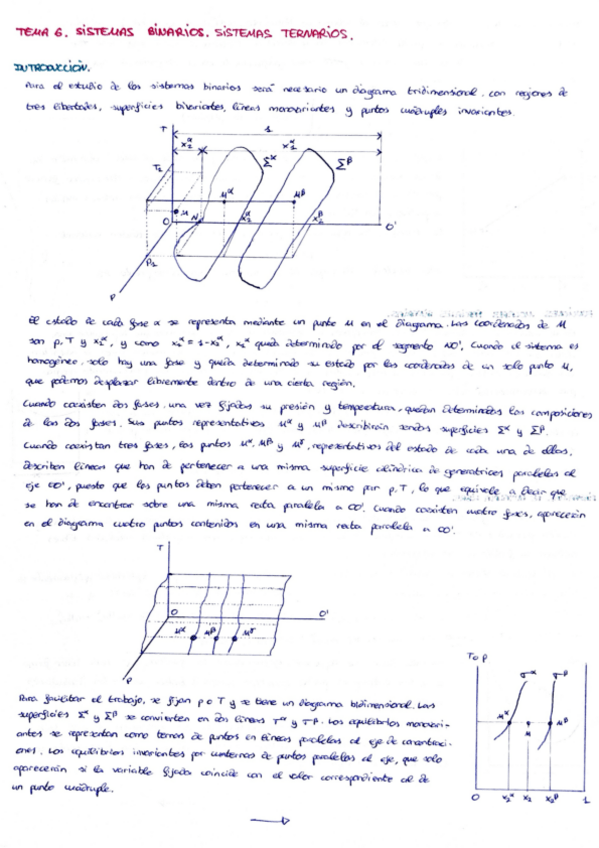 TEMA 6. SISTEMAS BINARIOS. SISTEMAS TERNARIOS.
INTRODUCCIÓN.
Para el estudio de los sistemas binarios será necesario un diagrama tridimensional, con regiones de
tres libertades, superficies bivariantes, líneas monovariantes y puntos cuádruples invariantes.
T
1
x₂^α
x₁^α
Σ^α
Σ^β
T₁
M^α
M^β
M
O
N
x₂^α
x₂^β
O'
P₁
P
El estado de cada fase α se representa mediante un punto M en el diagrama. Las coordenadas de M
son p, T y x₂^α, y como x₁^α = 1-x₂^α, x₁^α queda determinado por el segmento NO'. Cuando el sistema es
homogéneo, solo hay una fase y queda determinado su estado por las coordenadas de un solo punto M,
que podemos desplazar libremente dentro de una cierta región.
Cuando coexisten dos fases, una vez fijados su presión y temperatura, quedan determinadas las composiciones
de las dos fases. Sus puntos representativos M^α y M^β describirán sendas superficies Σ^α y Σ^β.
Cuando coexistan tres fases, los puntos M^α, M^β y M^γ, representativos del estado de cada una de ellas,
describen líneas que han de pertenecer a una misma superficie cilíndrica de generatrices paralelas al
eje OO', puesto que los puntos deben pertenecer a un mismo par p, T, lo que equivale a decir que
se han de encontrar sobre una misma recta paralela a OO'. Cuando coexisten cuatro fases, aparecerán
en el diagrama cuatro puntos contenidos en una misma recta paralela a OO'.
T
O
O'
M^α
M^β
M^γ
P
Para facilitar el trabajo, se fijan p o T y se tiene un diagrama bidimensional. Las
superficies Σ^α y Σ^β se convierten en dos líneas Γ^α y Γ^β. Los equilibrios monovari-
antes se representan como ternas de puntos en líneas paralelas al eje de concentraci-
ones. Los equilibrios invariantes por cuaternas de puntos paralelas al eje, que solo
aparecerán si la variable fijada coincide con el valor correspondiente al de
un punto cuádruple.
T o p
Γ^α
Γ^β
M^α
M
M^β
O
x₂^α
x₂
x₂^β
1